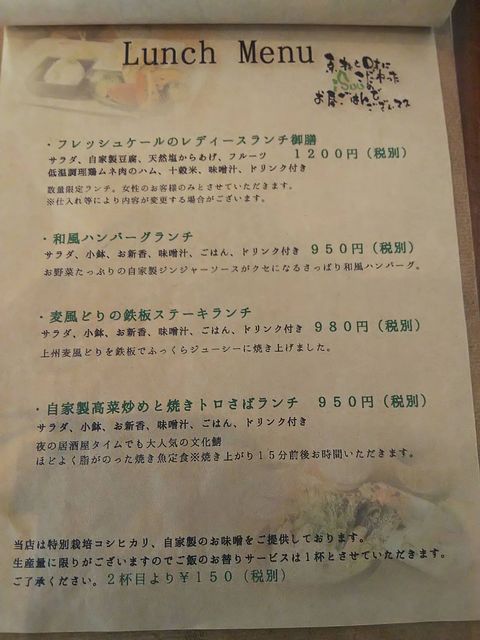 Lunch Menu
こだわった
お昼ごはんで
ございマス
・フレッシュケールのレディースランチ御膳
サラダ、自家製豆腐、天然塩からあげ、フルーツ 1200円（税別）
低温調理鶏ムネ肉のハム、十穀米、味噌汁、ドリンク付き
数量限定ランチ。女性のお客様のみとさせていただきます。
※仕入れ等により内容が変更する場合がございます。
・和風ハンバーグランチ
サラダ、小鉢、お新香、味噌汁、ごはん、ドリンク付き 950円（税別）
お野菜たっぷりの自家製ジンジャーソースがクセになるさっぱり和風ハンバーグ。
・麦風どりの鉄板ステーキランチ
サラダ、小鉢、お新香、味噌汁、ごはん、ドリンク付き 980円（税別）
上州麦風どりを鉄板でふっくらジューシーに焼き上げました。
・自家製高菜炒めと焼きトロさばランチ 950円（税別）
サラダ、小鉢、お新香、味噌汁、ごはん、ドリンク付き
夜の居酒屋タイムでも大人気の文化鯖
ほどよく脂がのった焼き魚定食※焼き上がり15分前後お時間いただきます。
当店は特別栽培コシヒカリ、自家製のお味噌をご提供しております。
生産量に限りがございますのでご飯のお替りサービスは1杯とさせていただきます。
ご了承ください。2杯目より￥150（税別）